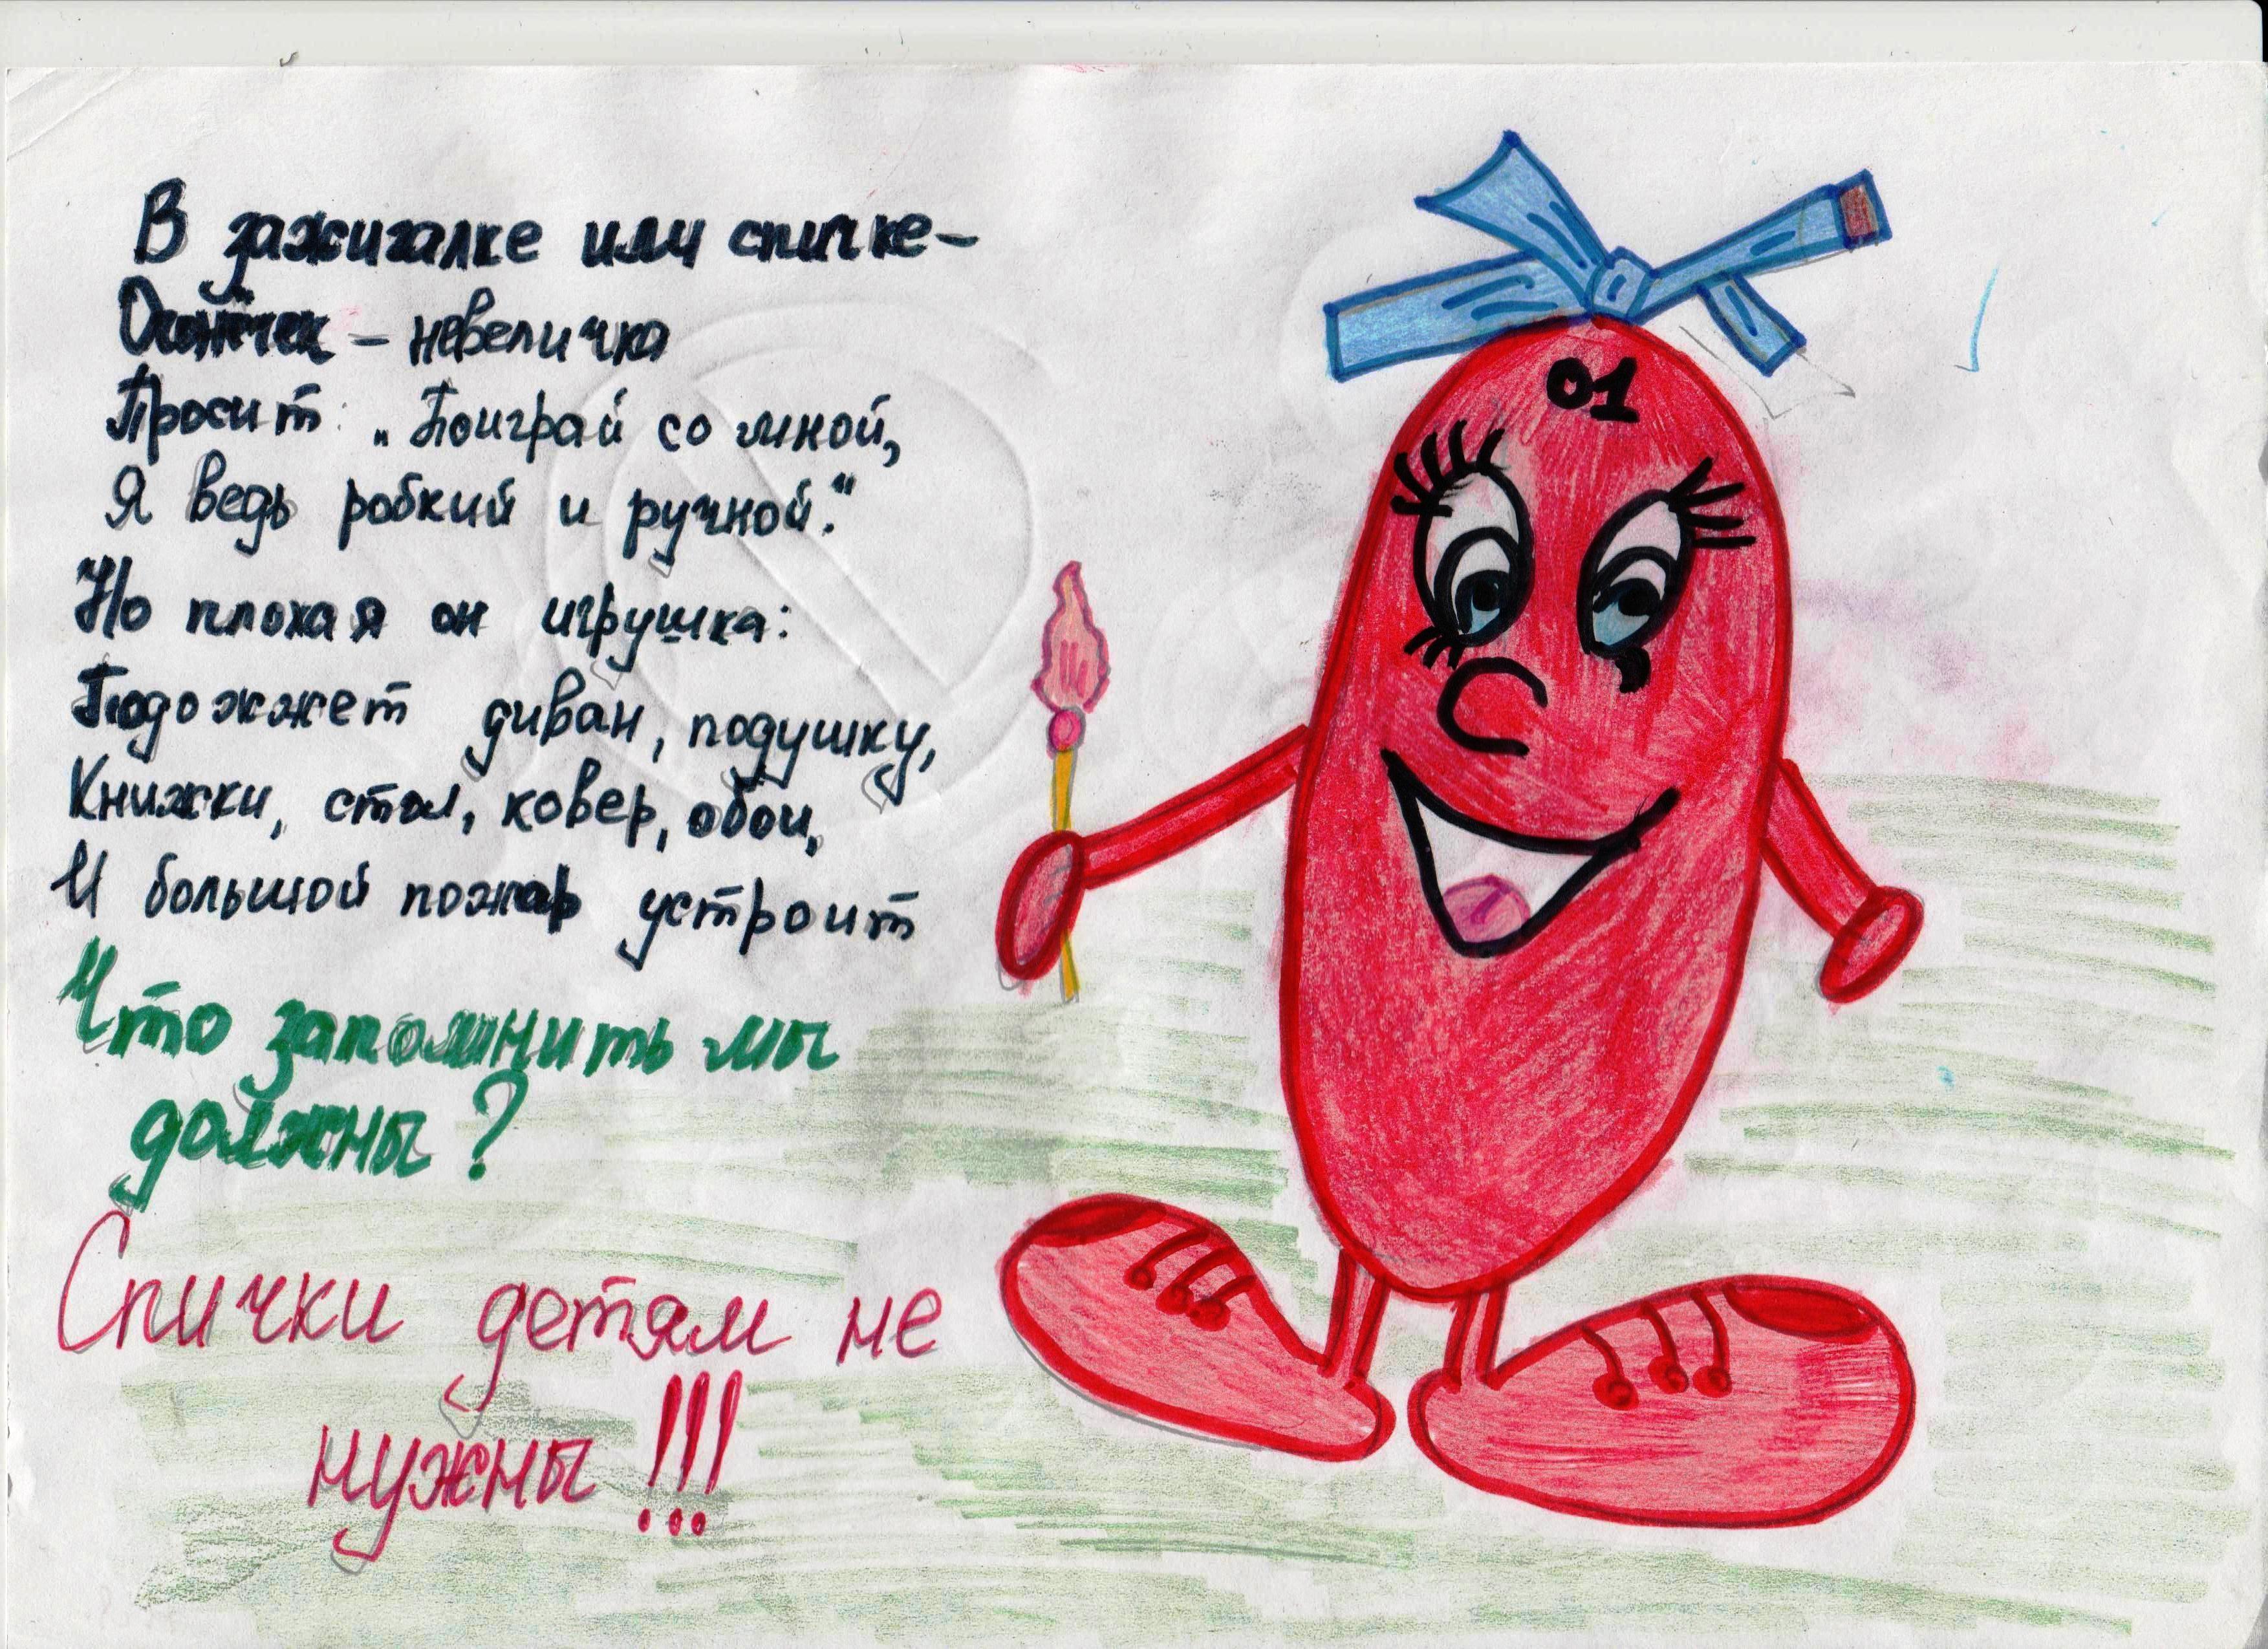 В зажигалке или спичке-
Огонёчек - невеличка
Просит: „Поиграй со мной,
Я ведь робкий и ручной."
Но плохая он игрушка:
Подожжет диван, подушку,
Книжки, стол, ковер, обои,
И большой пожар устроит
Что запомнить мы
должны?
Спички детям не
нужны!!!
01